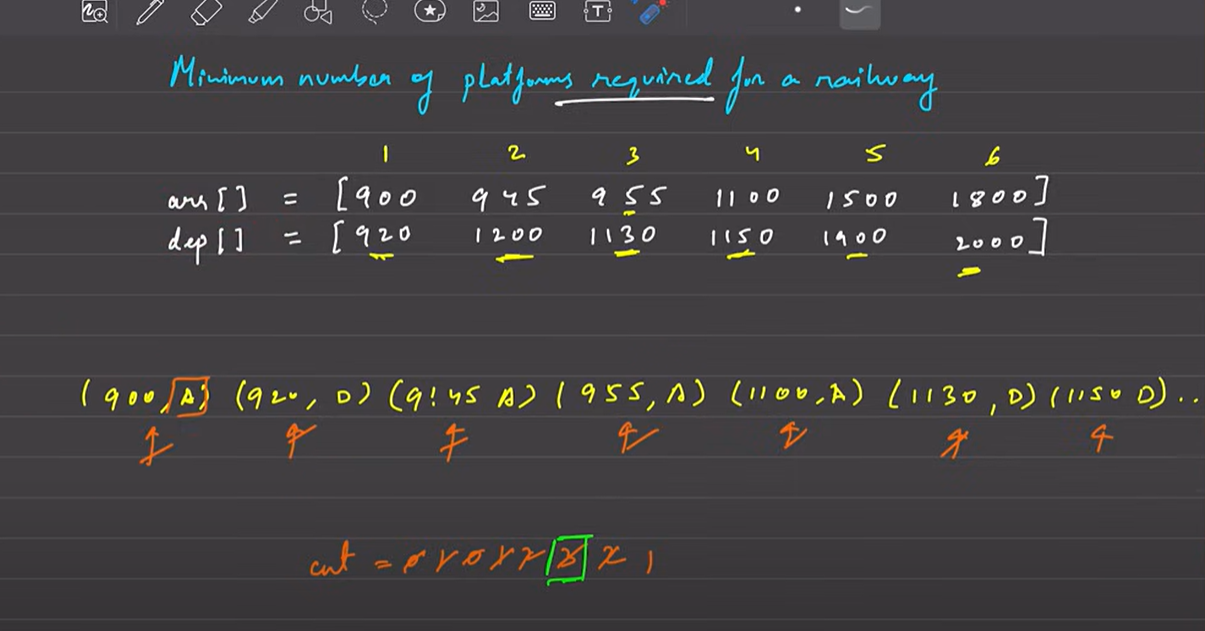 Minimum number of platforms required for a railway
1 2 3 4 5 6
arr[] = [900 945 955 1100 1500 1800]
dep[] = [920 1200 1130 1150 1900 2000]
(900, A) (920, D) (9:45 A) (955, A) (1100, A) (1130, D) (1150 D)..
cnt = 0 1 0 1 2 3 2 1